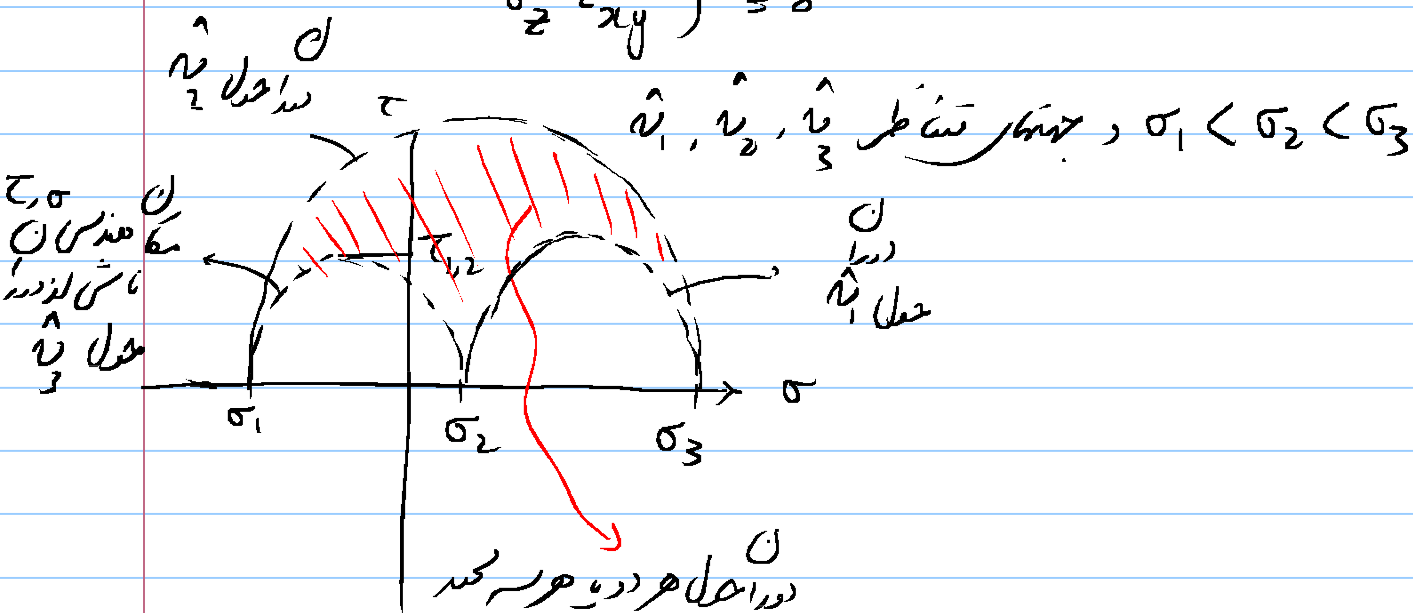 σz τxy ) = 0
دوران حول n̂2
n̂1 , n̂2 , n̂3 جهتهای متناظر , σ1 < σ2 < σ3
τ
τ, σ
مکان هندسی
ناشی از دوران
حول n̂3
τ1,2
دوران
حول n̂1
σ
σ1
σ2
σ3
دوران حول هر دو یا هر سه محور